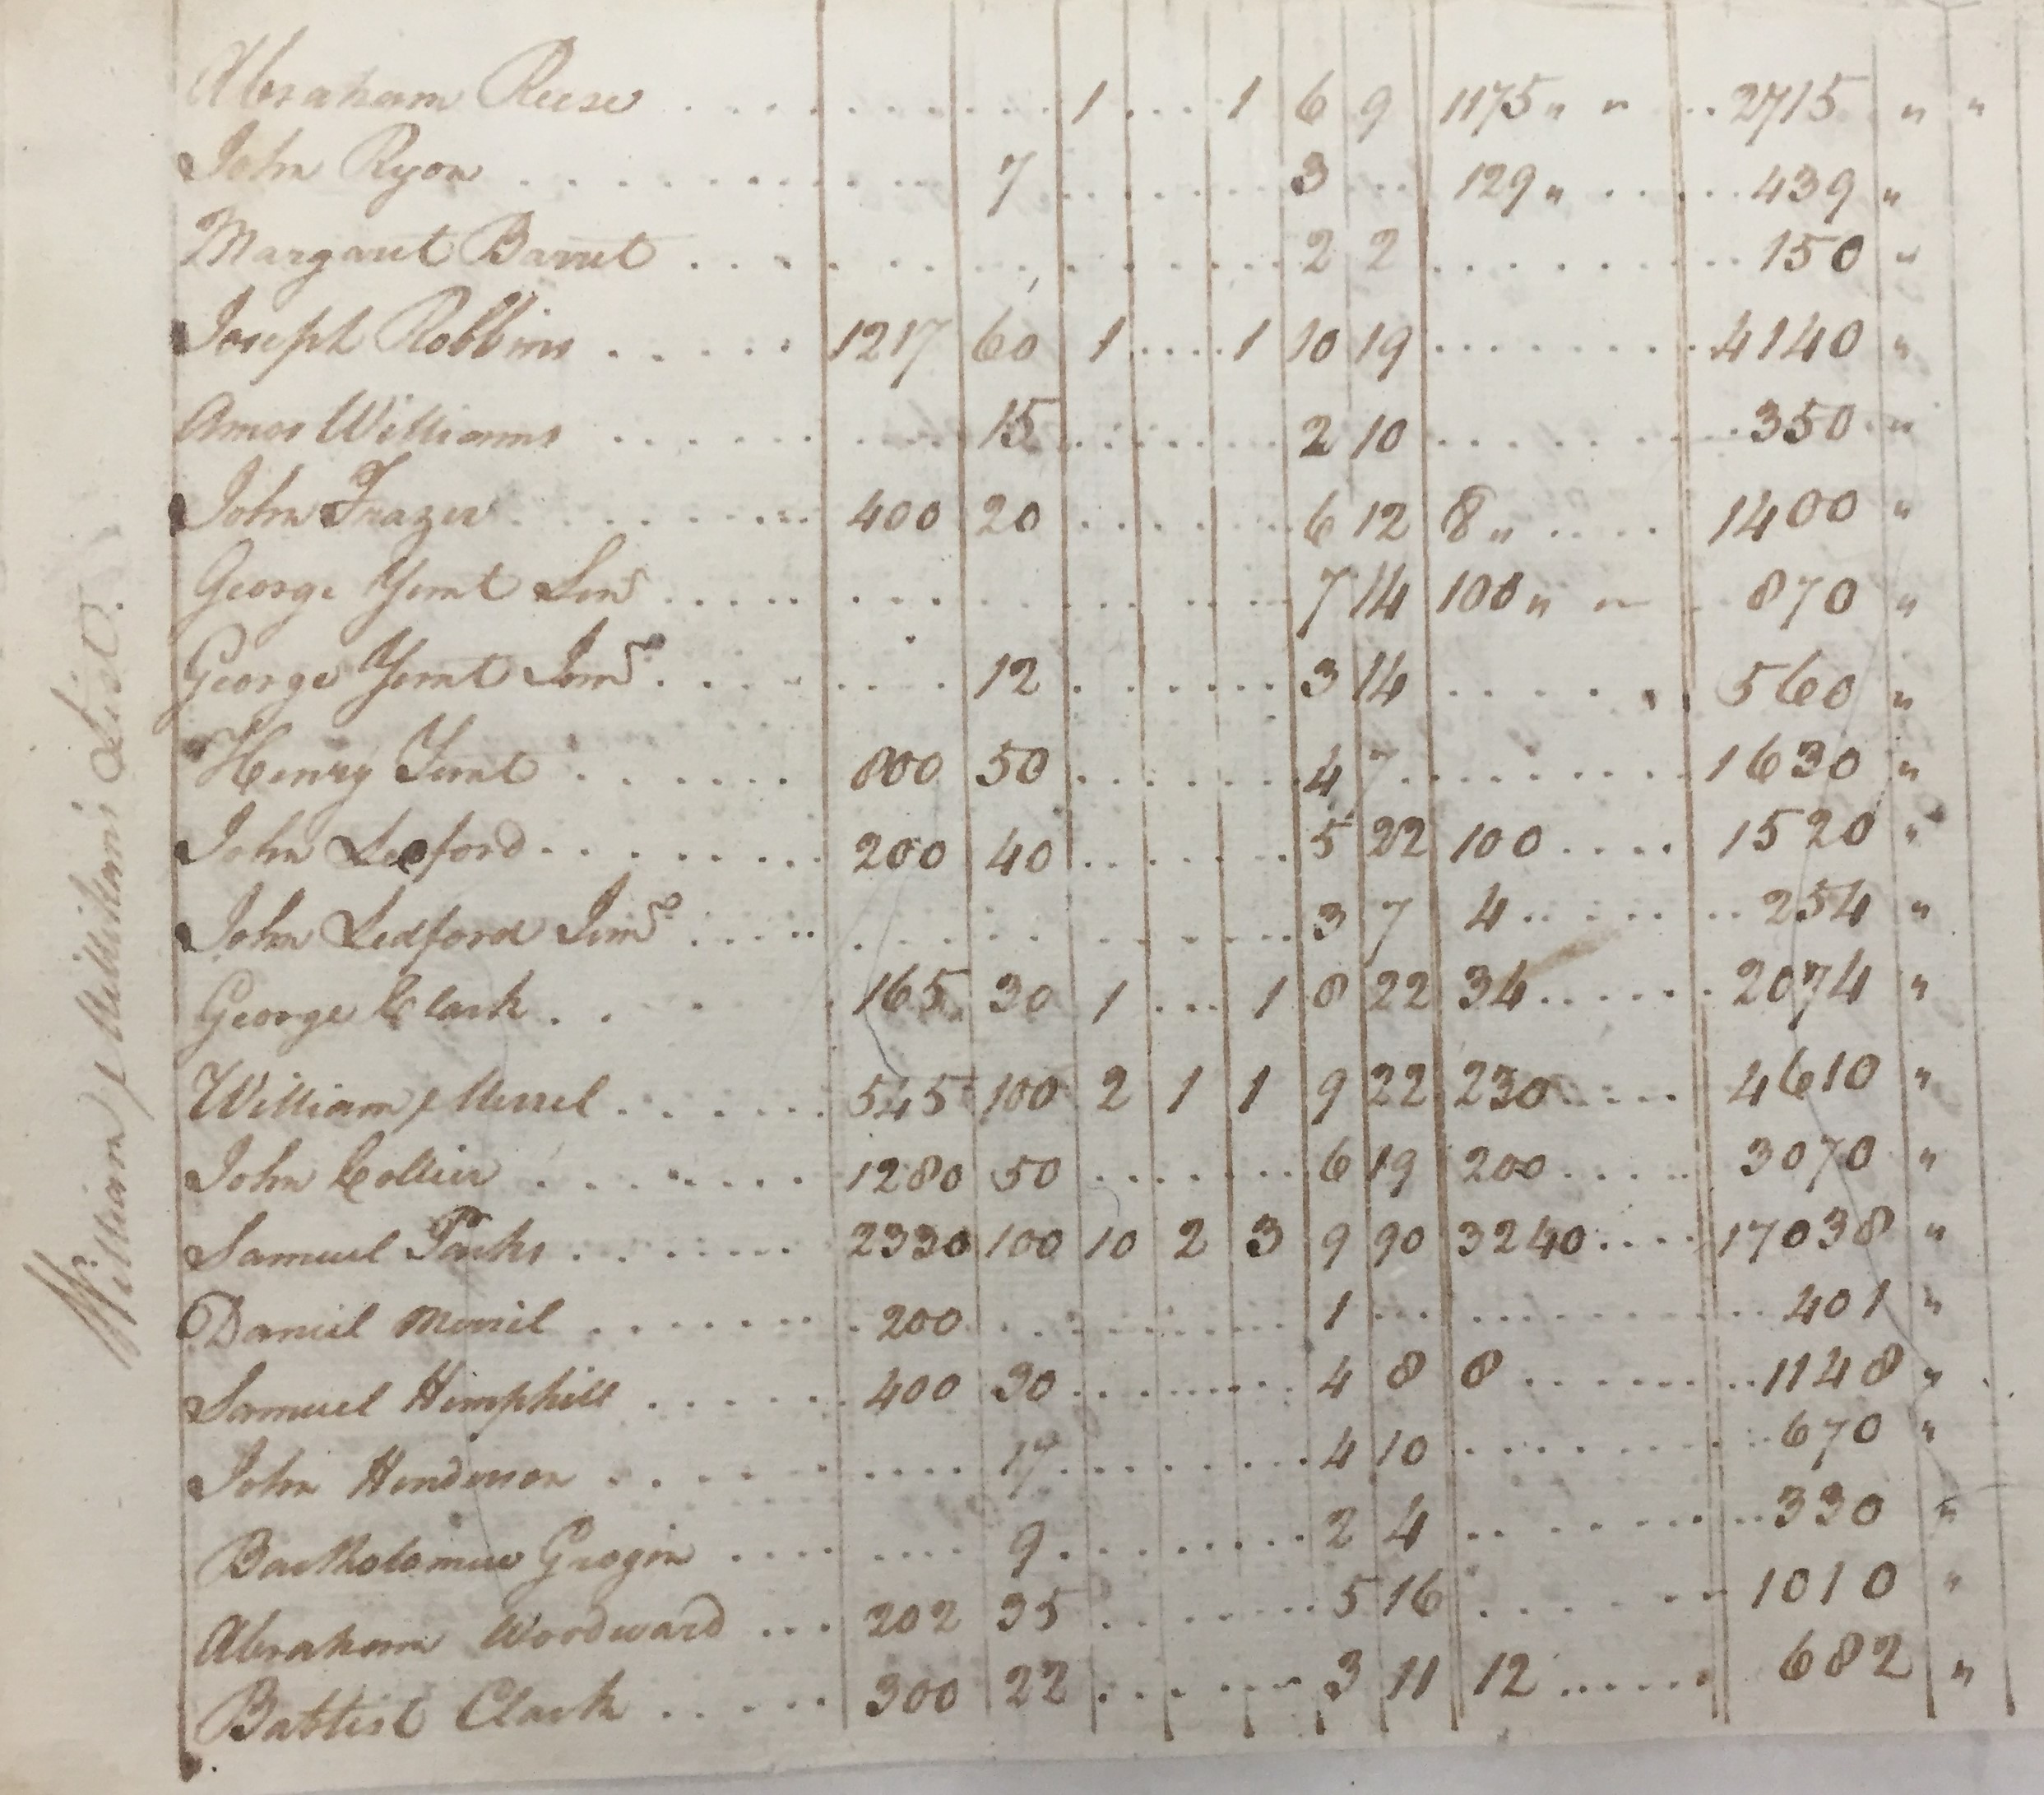 William Millikan's List.
Abraham Reese 1 1 6 9 1175 " " 2715 " "
John Ryon 7 3 129 " 439 "
Margaret Barret 2 2 150 "
Joseph Robbins 1217 60 1 1 10 19 4140 "
Amos Williams 15 2 10 350 "
John Frazer 400 20 6 12 8 " 1400 "
George Yount Senr 7 14 100 " " 870 "
George Yount Junr 12 3 14 560 "
Henry Yount 800 50 4 7 1630 "
John Ledford 200 40 5 22 100 1520 "
John Ledford Junr 3 7 4 254 "
George Clark 165 30 1 1 8 22 34 2074 "
William Merrel 545 100 2 1 1 9 22 230 4610 "
John Collier 1280 50 6 19 200 3070 "
Samuel Parks 2330 100 10 2 3 9 90 3240 17038 "
Daniel Merril 200 1 401 "
Samuel Hemphill 400 30 4 8 8 1148 "
John Henderson 17 4 10 670 "
Bartholomew Grogin 9 2 4 330 "
Abraham Woodward 202 35 5 16 1010 "
Battist Clark 300 22 3 11 12 682 "